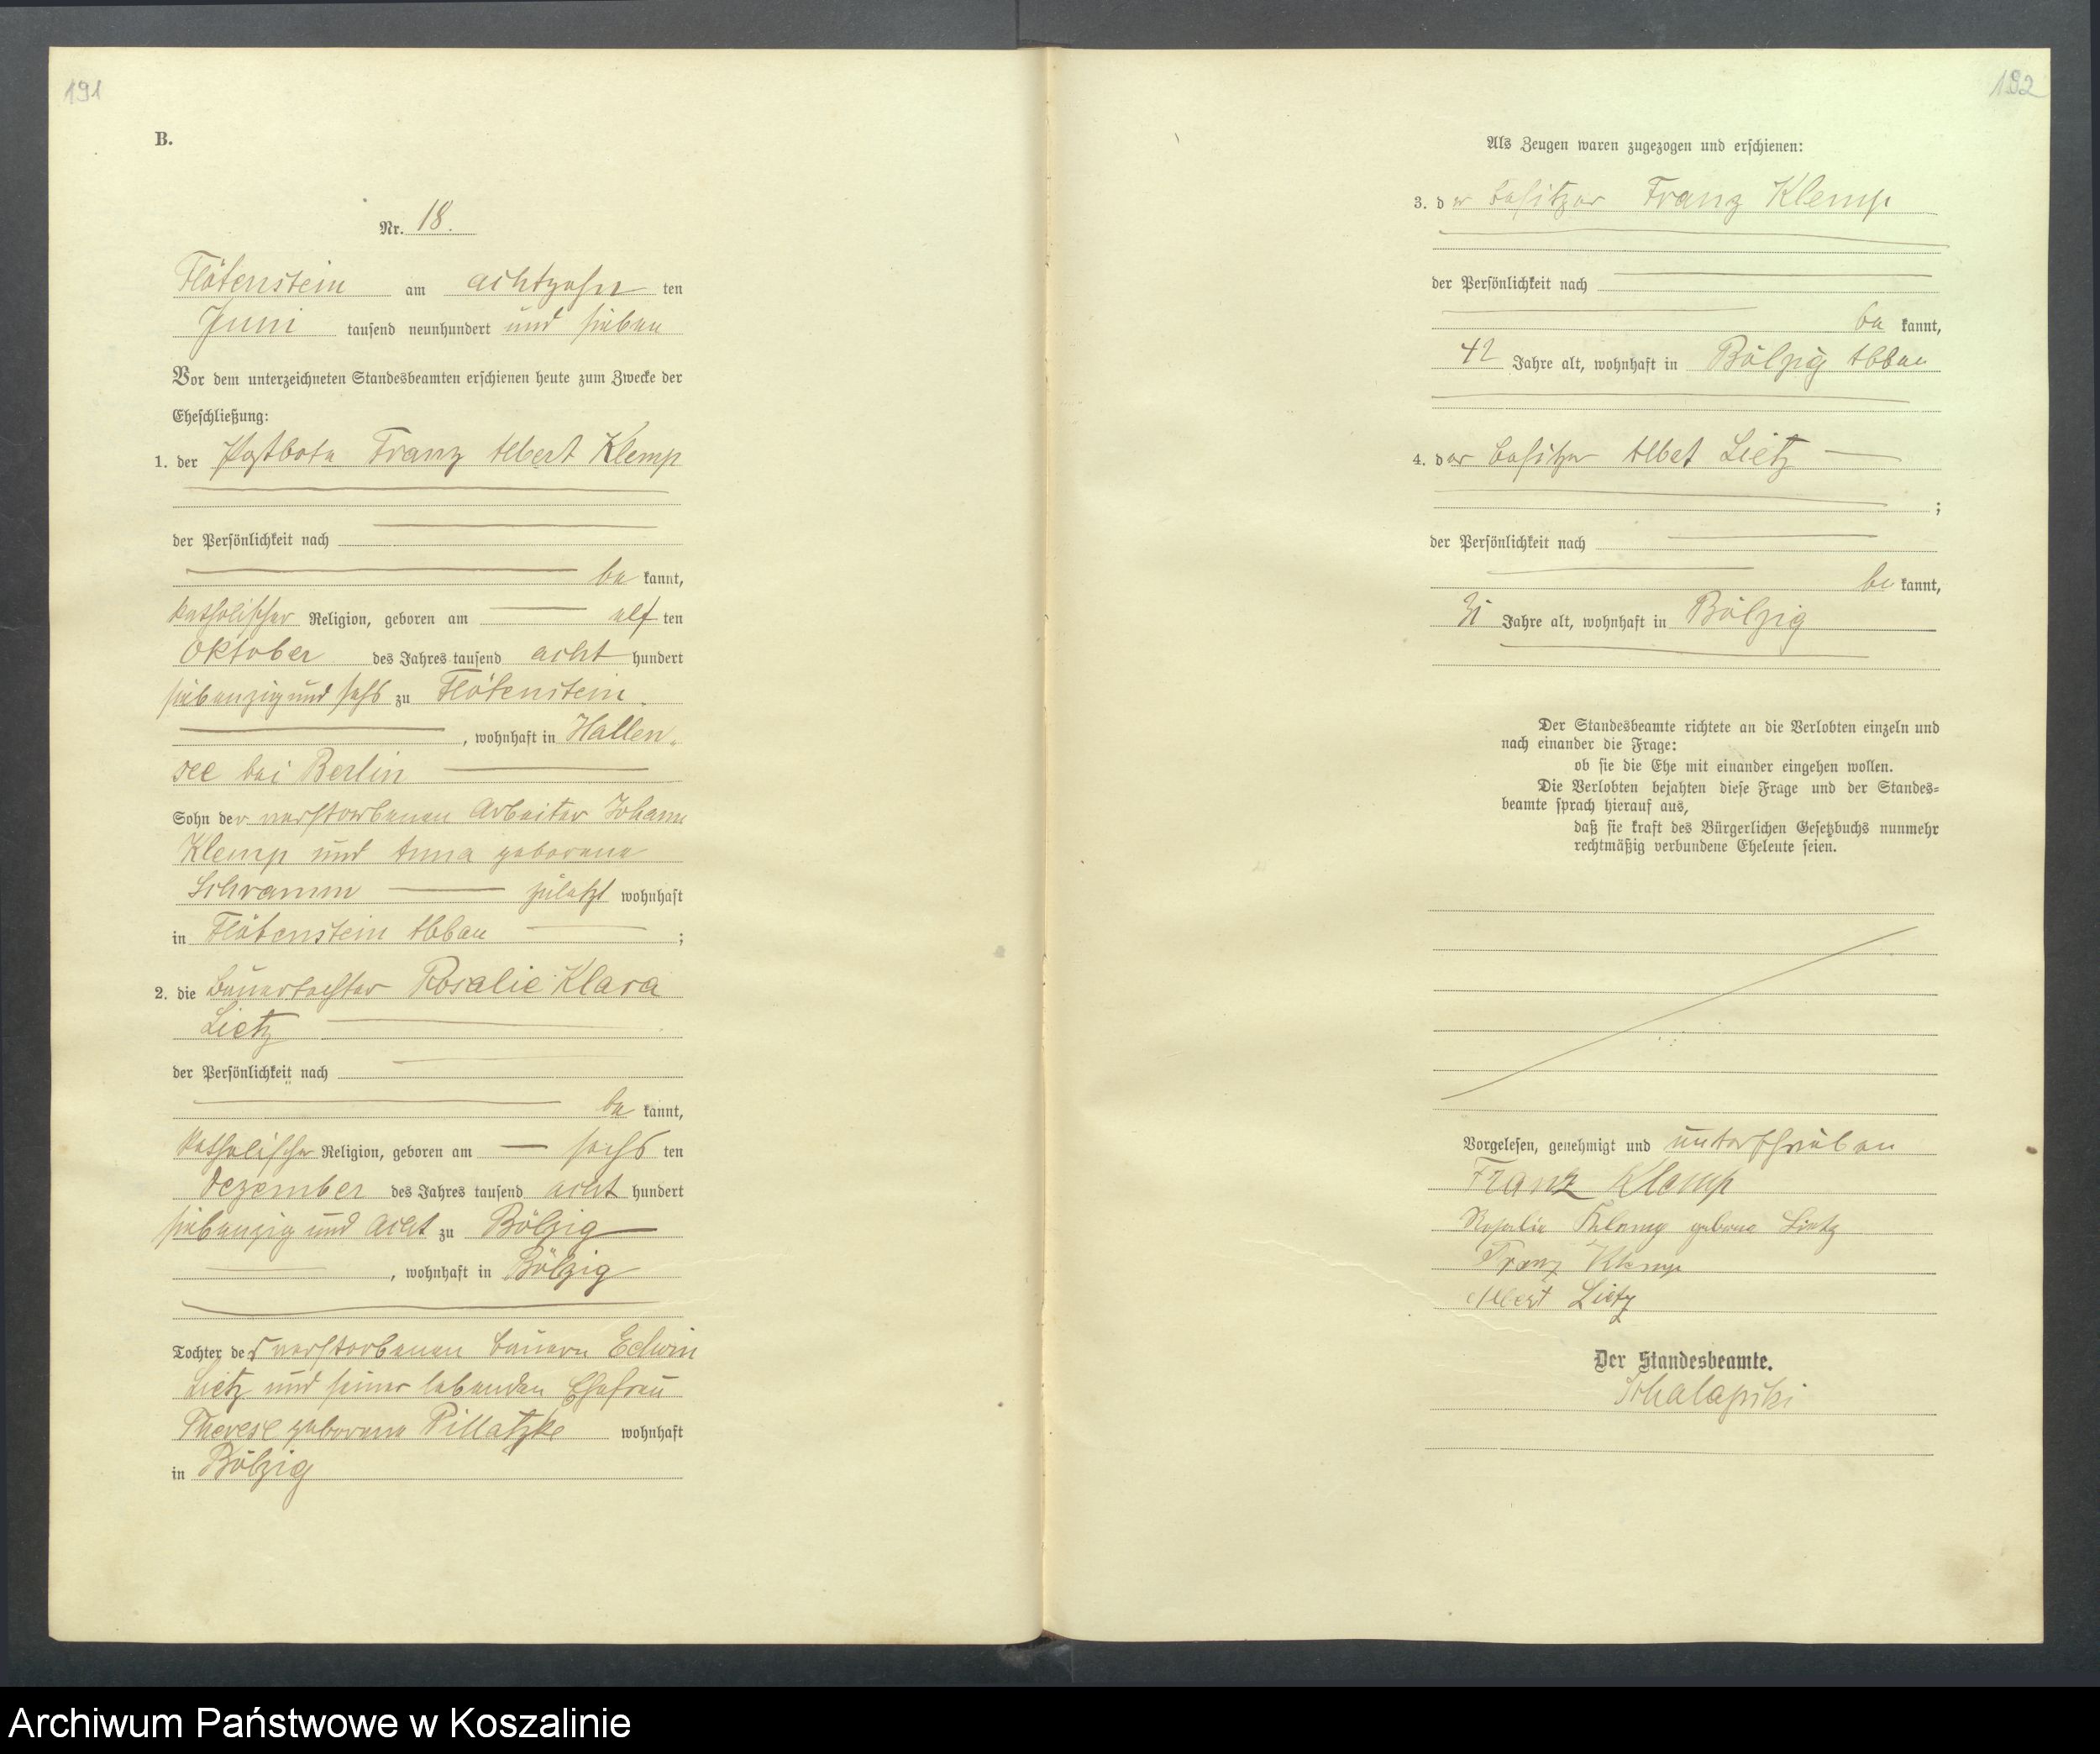 191
B.
Nr. 18.
Flötenstein am achtzehn ten
Juni tausend neunhundert und sieben
Vor dem unterzeichneten Standesbeamten erschienen heute zum Zwecke der
Eheschließung:
1. der Postbote Franz Albert Klemp
der Persönlichkeit nach
be kannt,
katholischer Religion, geboren am elf ten
Oktober des Jahres tausend acht hundert
siebenzig und sechs zu Flötenstein
, wohnhaft in Hallen-
see bei Berlin
Sohn der verstorbenen Arbeiter Johann
Klemp und Anna geborene
Schramm zuletzt wohnhaft
in Flötenstein Abbau ;
2. die Bauertochter Rosalie Klara
Lietz
der Persönlichkeit nach
be kannt,
katholischer Religion, geboren am sechs ten
Dezember des Jahres tausend acht hundert
siebenzig und acht zu Bölzig
, wohnhaft in Bölzig
Tochter des verstorbenen Bauern Edwin
Lietz und seiner lebenden Ehefrau
Therese geborene Pillatzke wohnhaft
in Bölzig
192
Als Zeugen waren zugezogen und erschienen:
3. der Besitzer Franz Klemp
der Persönlichkeit nach
be kannt,
42 Jahre alt, wohnhaft in Bölzig Abbau
4. der Besitzer Albet Lietz
;
der Persönlichkeit nach
be kannt,
Jahre alt, wohnhaft in Bölzig
Der Standesbeamte richtete an die Verlobten einzeln und
nach einander die Frage:
ob sie die Ehe mit einander eingehen wollen.
Die Verlobten bejahten diese Frage und der Standes-
beamte sprach hierauf aus,
daß sie kraft des Bürgerlichen Gesetzbuchs nunmehr
rechtmäßig verbundene Eheleute seien.
Vorgelesen, genehmigt und unterschrieben
Franz Klemp
Rosalie Klemp geborne Lietz
Franz Klemp
Albert Lietz
Der Standesbeamte.
Archiwum Państwowe w Koszalinie